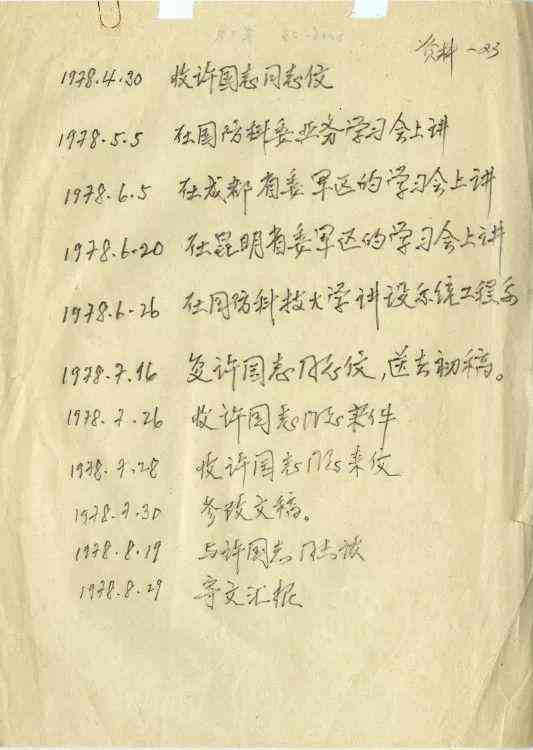 资料-23
1978.4.30 收许国志同志信
1978.5.5 在国防科委业务学习会上讲
1978.6.5 在成都省委军区的学习会上讲
1978.6.20 在昆明省委军区的学习会上讲
1978.6.26 在国防科技大学讲设系统工程系
1978.7.16 复许国志同志信,送去初稿。
1978.7.26 收许国志同志来件
1978.7.28 收许国志同志来信
1978.7.30 修改文稿。
1978.8.19 与许国志同志谈
1978.8.29 寄文汇报